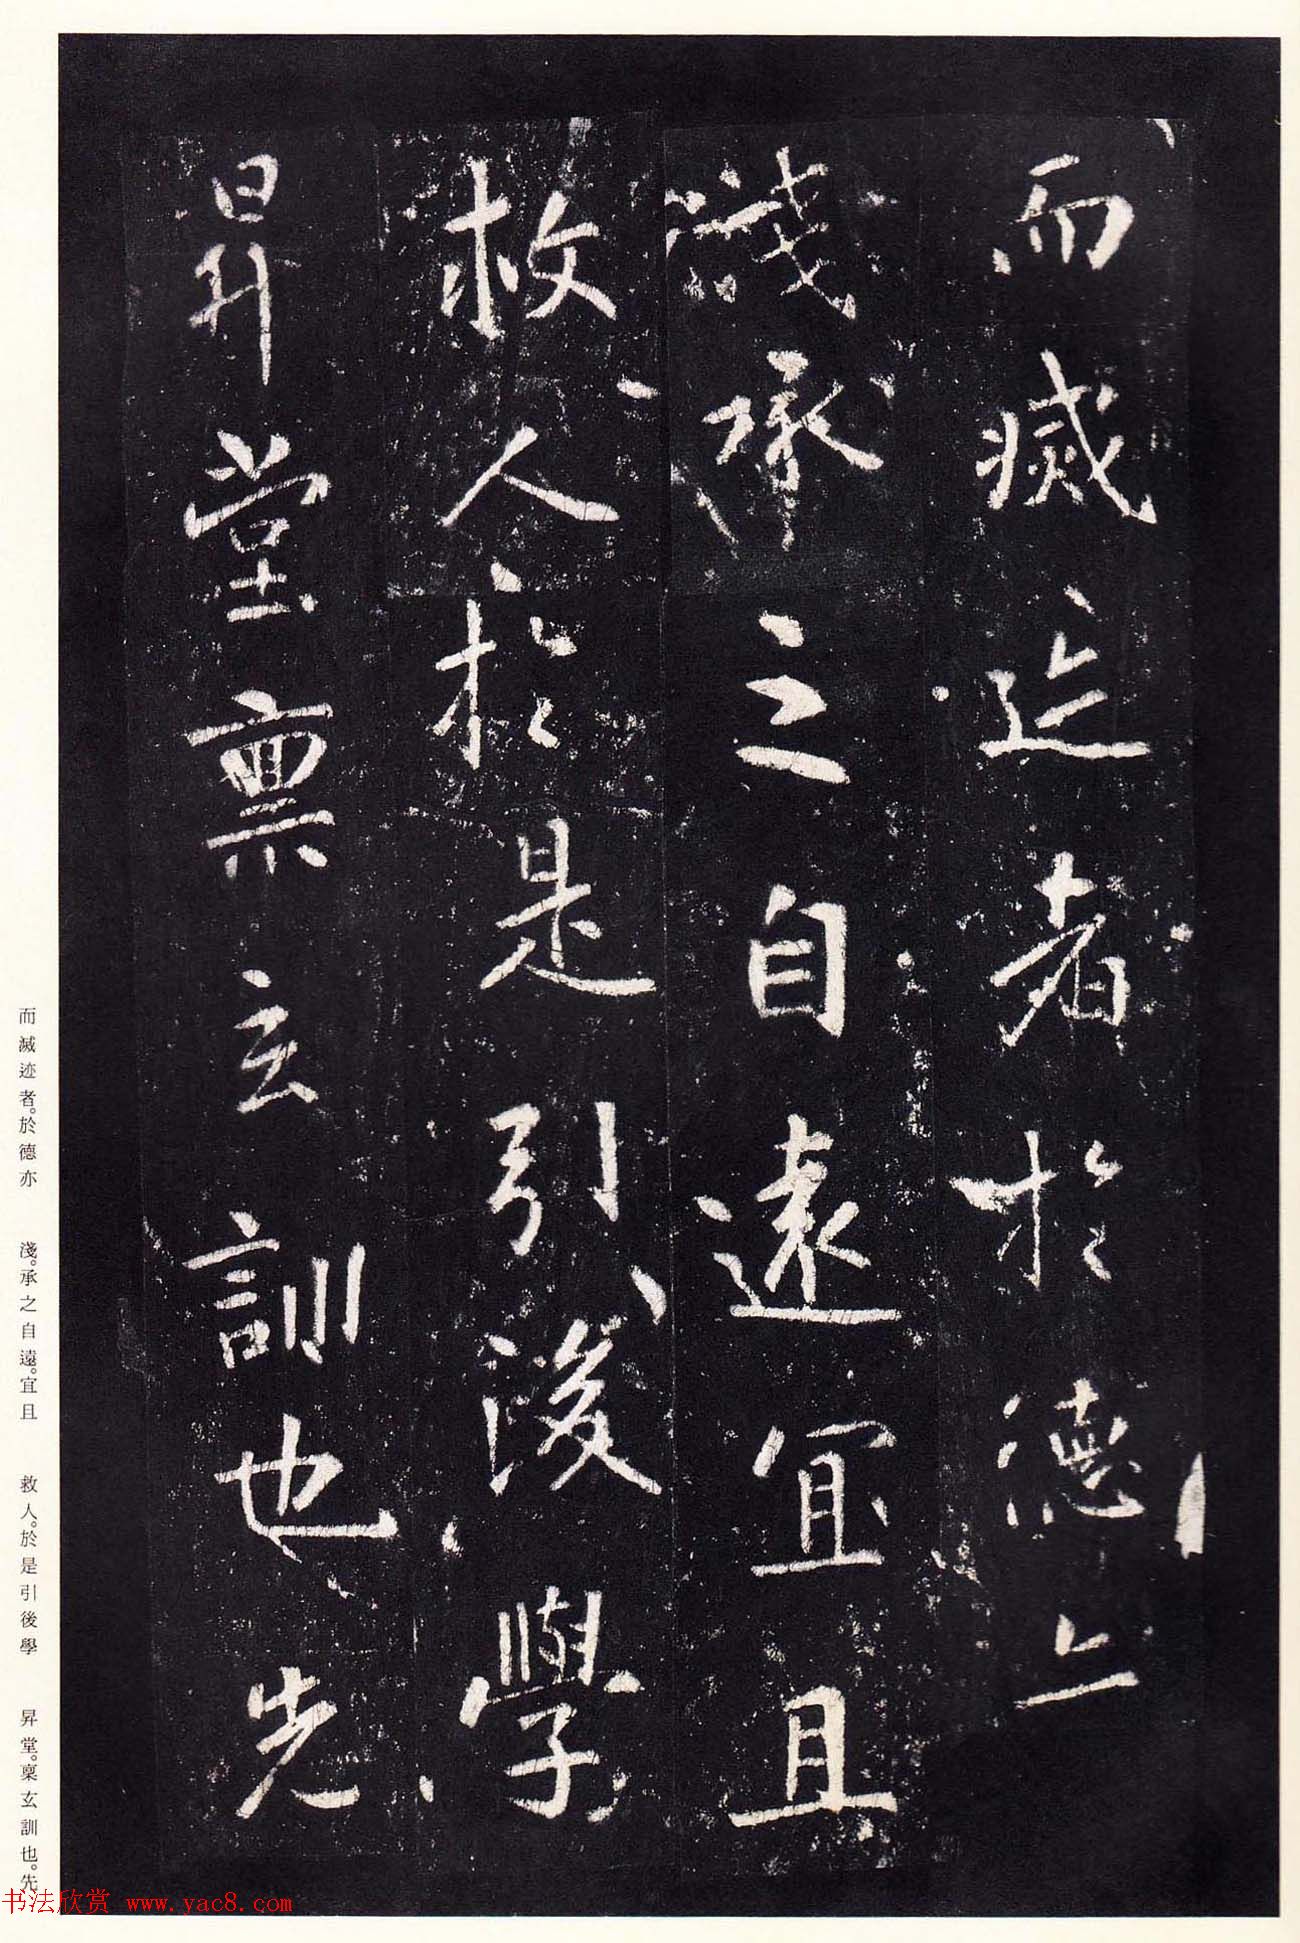 而滅迹者於德亦
淺承之自遠宜且
救人於是引後學
昇堂稟玄訓也先
而滅迹者。於德亦　淺。承之自遠。宜且　救人。於是引後學　昇堂。稟玄訓也。先
书法欣赏 www.yac8.com